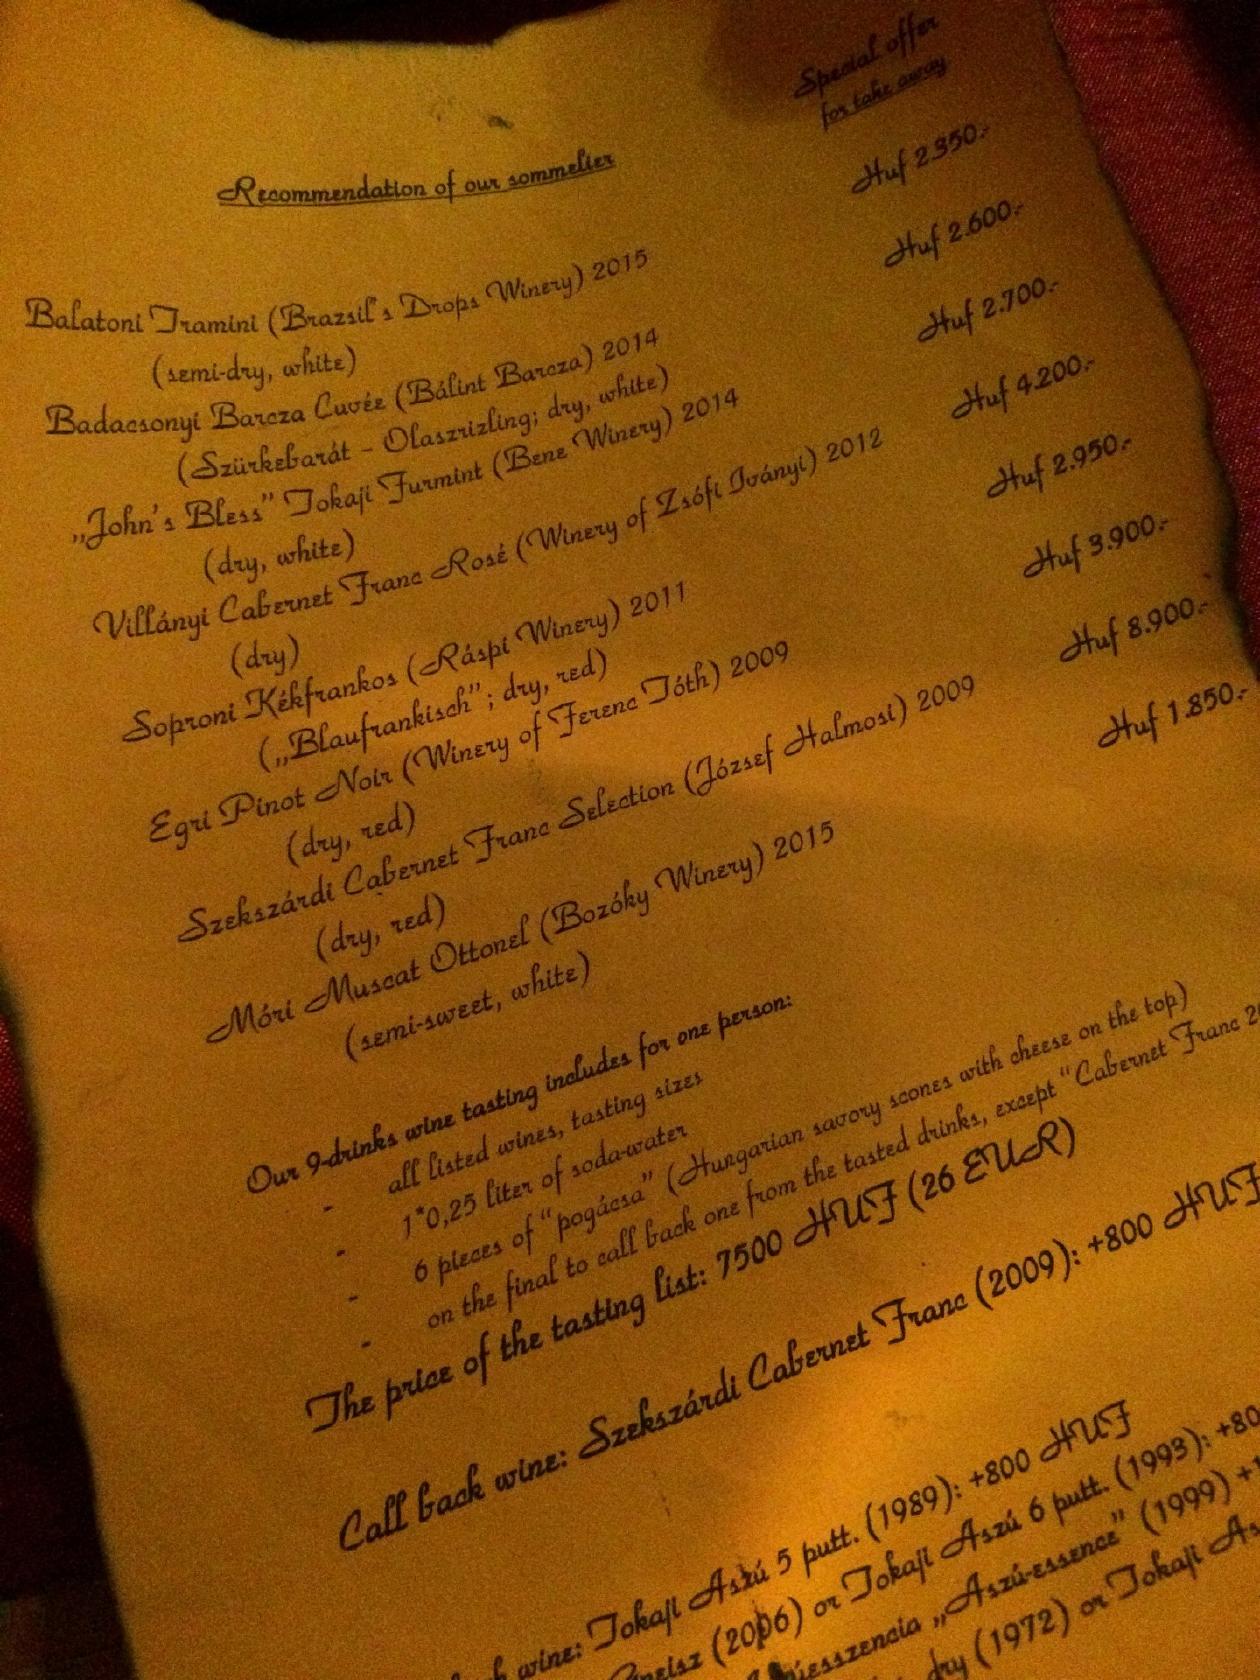 Special offer
for take away
Recommendation of our sommelier
Balatoni Tramini (Brazsil's Drops Winery) 2015 Huf 2.350.-
(semi-dry, white)
Badacsonyi Barcza Cuvée (Bálint Barcza) 2014 Huf 2.600.-
(Szürkebarát - Olaszrizling; dry, white)
„John's Bless" Tokaji Furmint (Bene Winery) 2014 Huf 2.700.-
(dry, white)
Villányi Cabernet Franc Rosé (Winery of Zsófi Iványi) 2012 Huf 4.200.-
(dry)
Soproni Kékfrankos (Ráspi Winery) 2011 Huf 2.950.-
(„Blaufrankisch"; dry, red)
Egri Pinot Noir (Winery of Ferenc Tóth) 2009 Huf 3.900.-
(dry, red)
Szekszárdi Cabernet Franc Selection (József Halmosi) 2009 Huf 8.900.-
(dry, red)
Móri Muscat Ottonel (Bozóky Winery) 2015 Huf 1.850.-
(semi-sweet, white)
Our 9-drinks wine tasting includes for one person:
- all listed wines, tasting sizes
- 1*0,25 liter of soda-water
- 6 pieces of "pogácsa" (Hungarian savory scones with cheese on the top)
- on the final to call back one from the tasted drinks, except "Cabernet Franc
The price of the tasting list: 7500 HUF (26 EUR)
Call back wine: Szekszárdi Cabernet Franc (2009): +800 HUF
wine: Tokaji Aszú 5 putt. (1989): +800 HUF
(2006) or Tokaji Aszú 6 putt. (1993):
„Aszú-essence" (1999)
dry (1972) or Tokaji